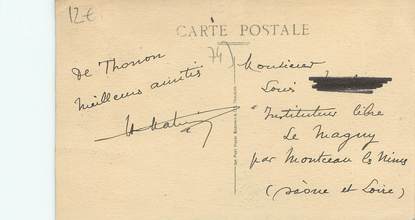 12€
CARTE POSTALE
74
de Thonon
meilleures amitiés
Monsieur
Louis
Instituteur libre
Le Magny
par Montceau les Mines
(Saône et Loire)